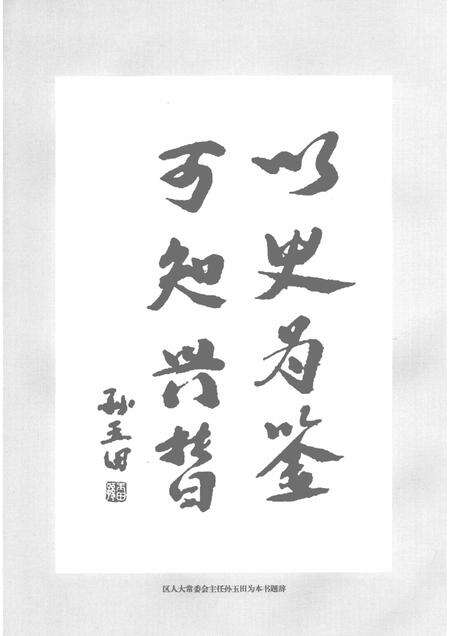 以史为鉴
可知兴替
孙玉田
区人大常委会主任孙玉田为本书题辞